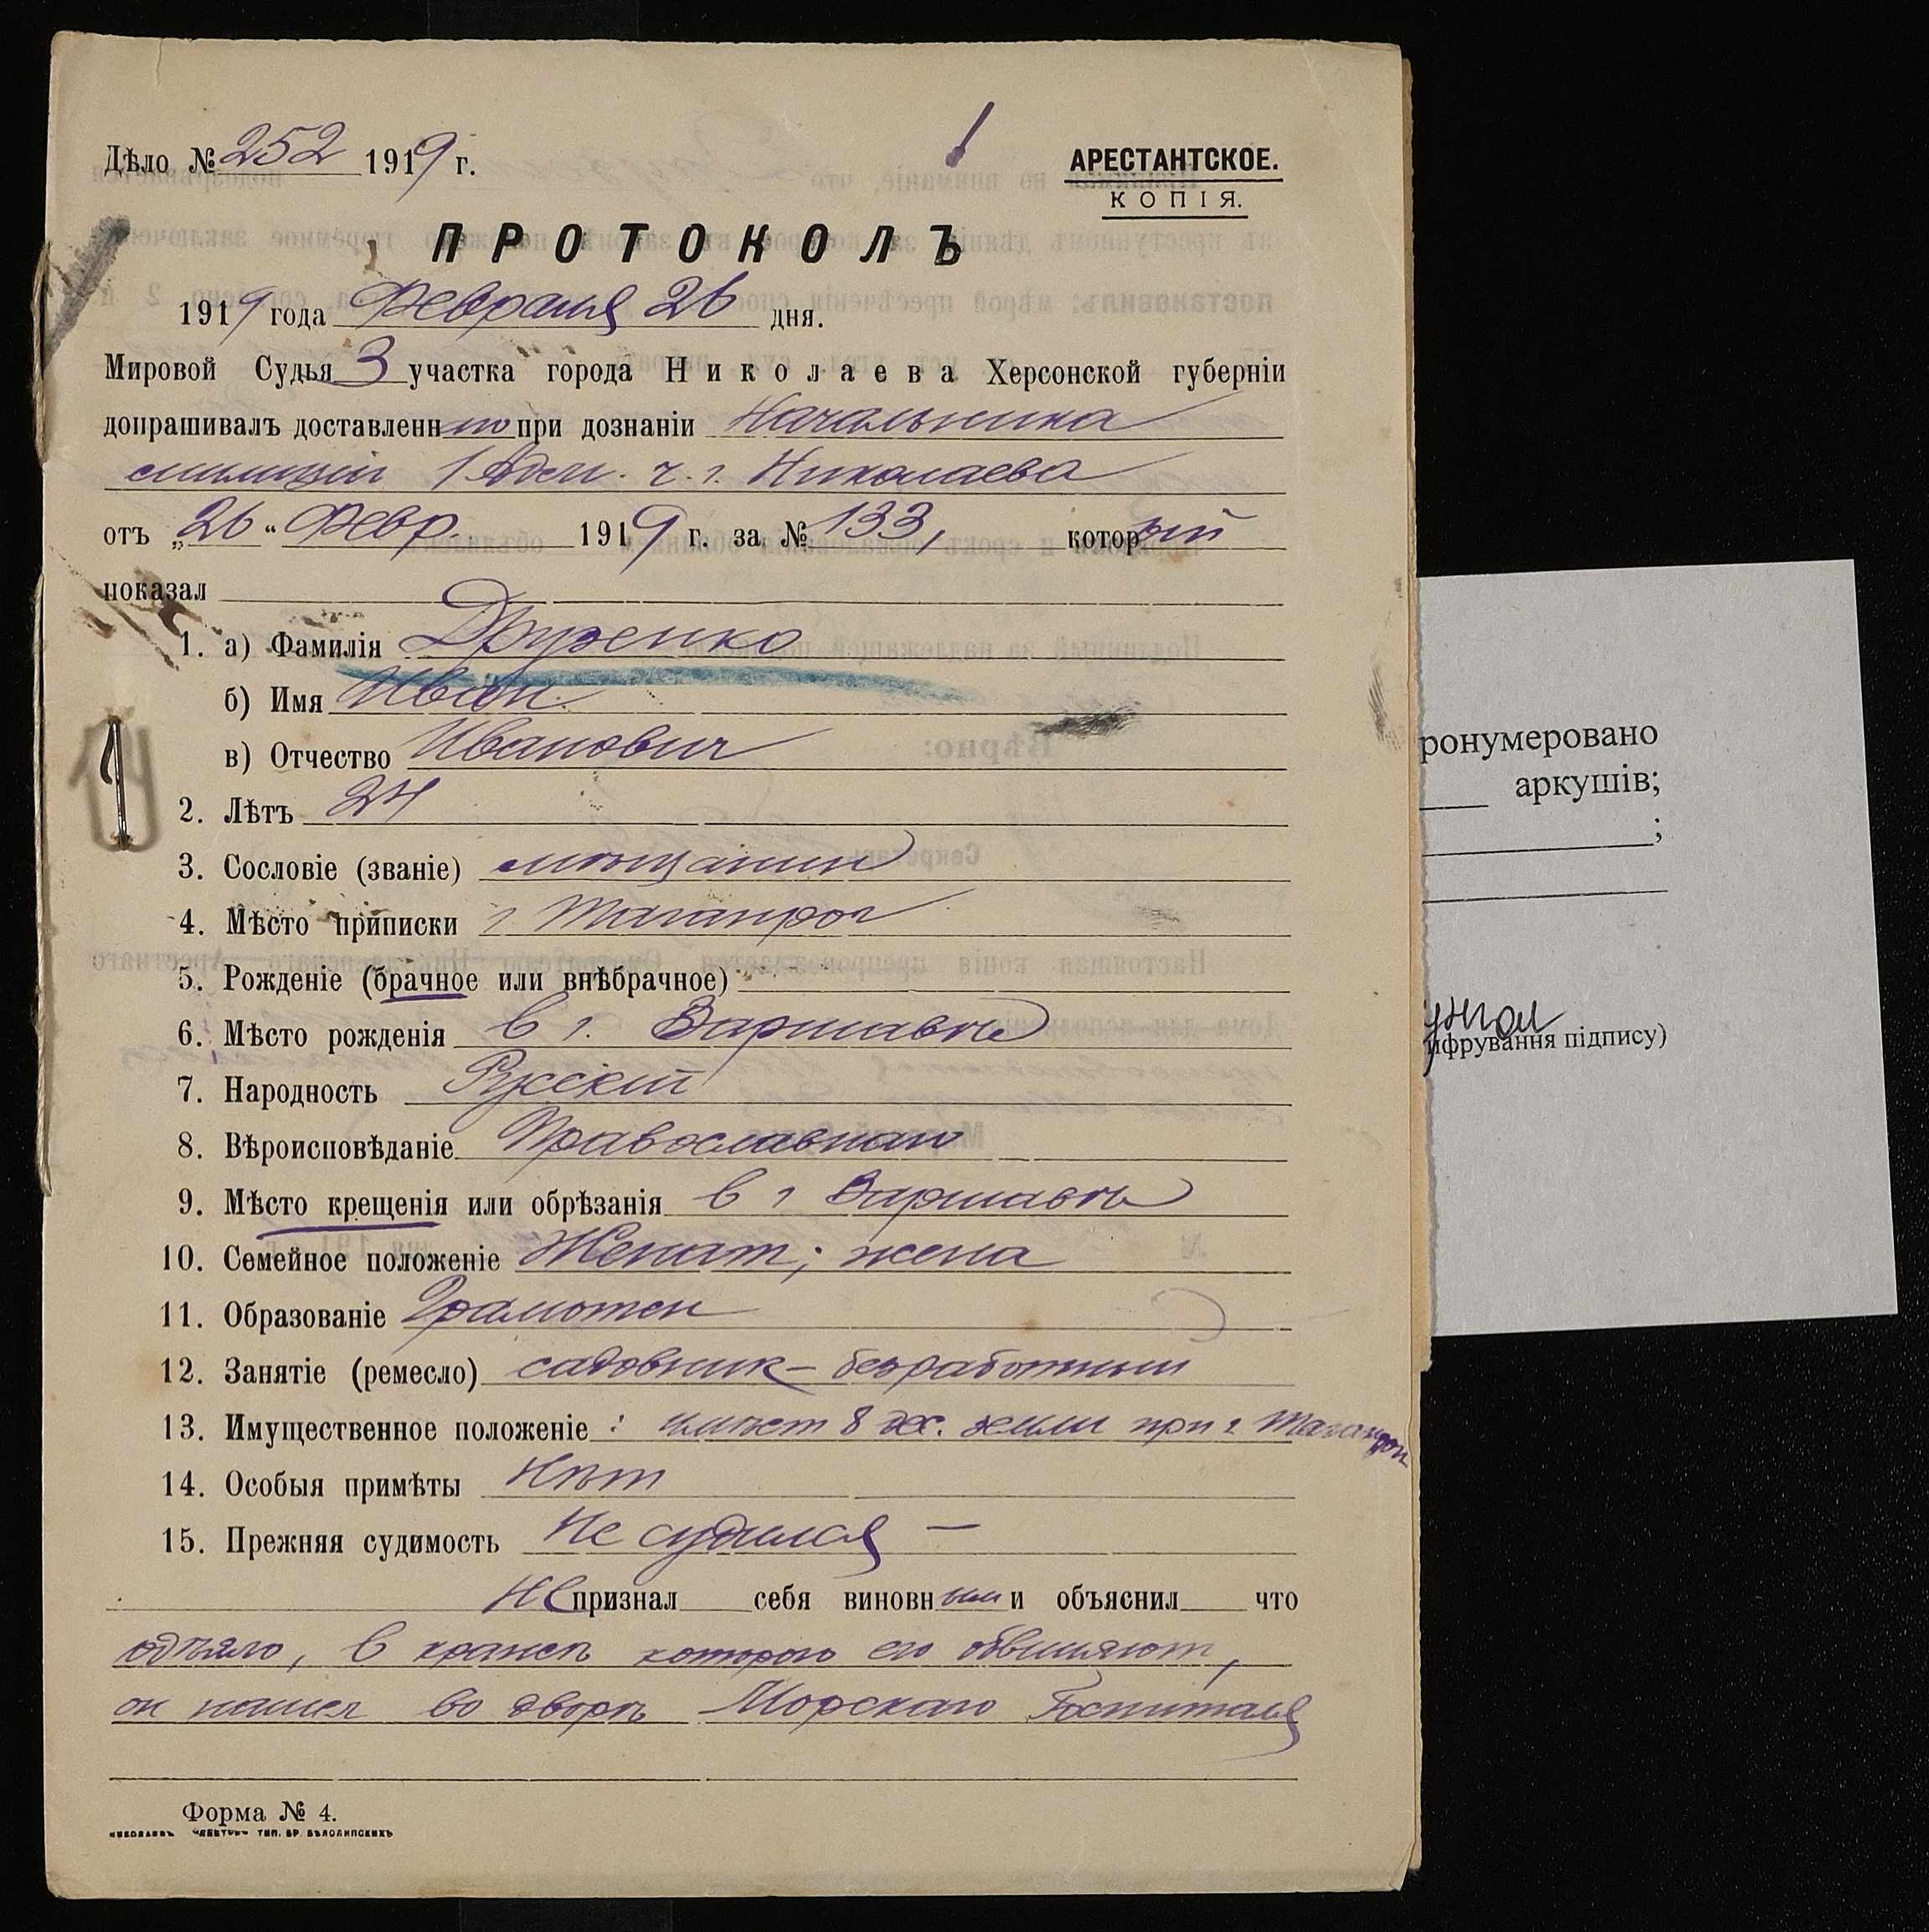 Дѣло № 252 1919 г.
АРЕСТАНТСКОЕ.
КОПІЯ.
ПРОТОКОЛЪ
1919 года Февраля 26 дня.
Мировой Судья 3 участка города Николаева Херсонской губерніи
допрашивалъ доставленнаго при дознаніи Начальника
милиціи 1 Адм. ч. г. Николаева
отъ „26“ Февр. 1919 г. за № 133, который
показал
1. а) Фамилія Друзенко
б) Имя Иван
в) Отчество Иванович
2. Лѣтъ 24
3. Сословіе (званіе) мѣщанин
4. Мѣсто приписки г Таганрог
5. Рожденіе (брачное или внѣбрачное)
6. Мѣсто рожденія в г. Варшавѣ
7. Народность Русскій
8. Вѣроисповѣданіе Православнаго
9. Мѣсто крещенія или обрѣзанія в г Варшавѣ
10. Семейное положеніе Женат; жена
11. Образованіе Грамотен
12. Занятіе (ремесло) садовник – безработный
13. Имущественное положеніе : имѣет 8 дес. земли при г Таганрог
14. Особыя примѣты Нѣт
15. Прежняя судимость Не судился –
Не признал себя виновным и объяснил что
одѣяло, в кражѣ котораго его обвиняют,
он нашел во дворѣ Морскаго Госпиталя
Форма № 4.
ронумеровано
аркушів;
;
ифрування підпису)